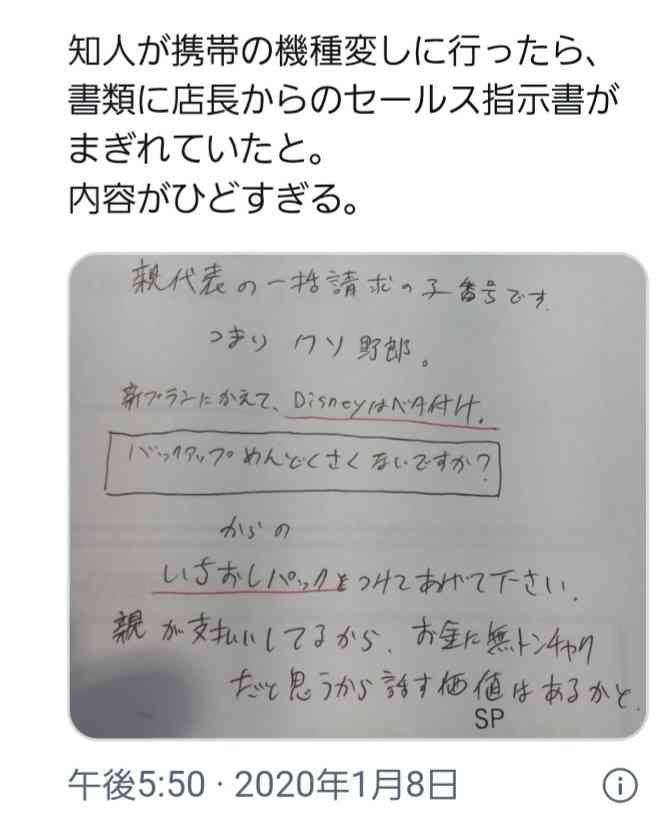 知人が携帯の機種変しに行ったら、
書類に店長からのセールス指示書が
まぎれていたと。
内容がひどすぎる。
親代表の一括請求の子番号です.
つまり クソ野郎。
新プランにかえて、Disneyはベタ付け。
バックアップめんどくさくないですか?
からの
いちおしパックをつけてあげて下さい.
親が支払いしてるから、お金に無トンチャク
だと思うから話す価値はあるかと.
SP
午後5:50 · 2020年1月8日